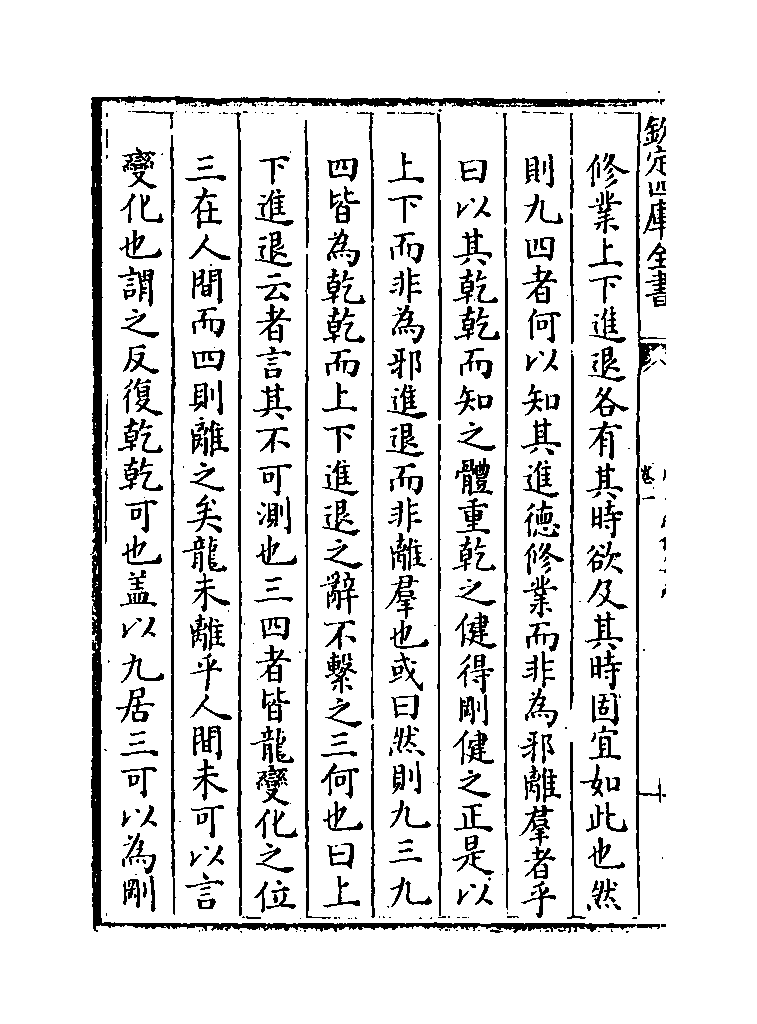 欽定四庫全書
卷一
修業上下進退各有其時欲及其時固宜如此也然
則九四者何以知其進德修業而非為邪離羣者乎
曰以其乾乾而知之體重乾之健得剛健之正是以
上下而非為邪進退而非離羣也或曰然則九三九
四皆為乾乾而上下進退之辭不繫之三何也曰上
下進退云者言其不可測也三四者皆龍變化之位
三在人間而四則離之矣龍未離乎人間未可以言
變化也謂之反復乾乾可也盖以九居三可以為剛